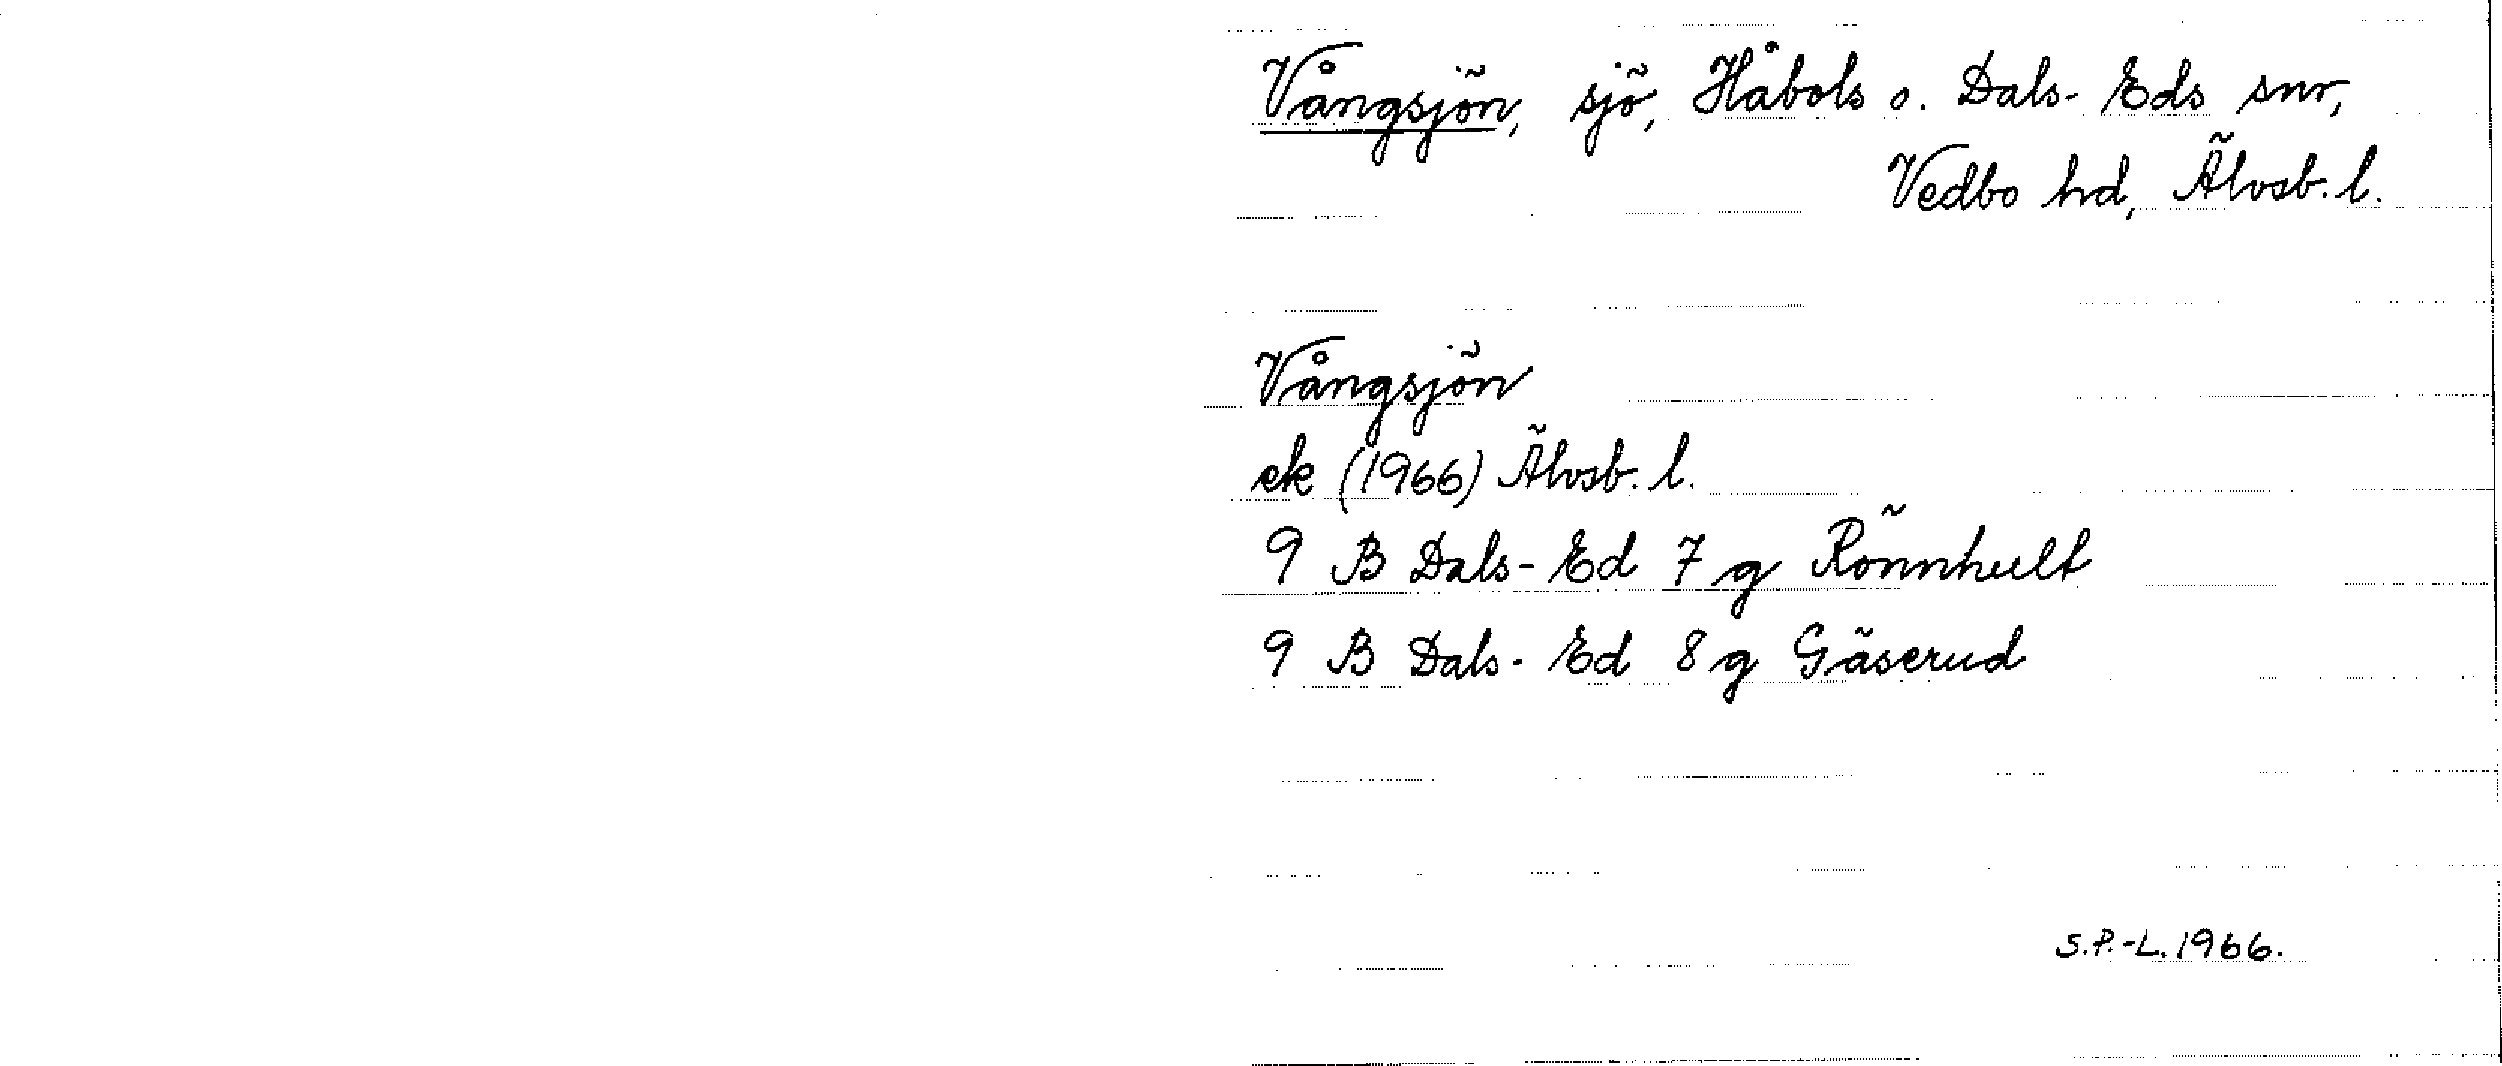 Vångsjön, sjö, Håbols o. Dals-Eds snr,
Vedbo hd, Älvsb. l.
Vångsjön
ek (1966) Älvsb. l.
9 B Dals-Ed 7 g Rönnhult
9 B Dals-Ed 8 g Gäserud
S.P.-L. 1966.